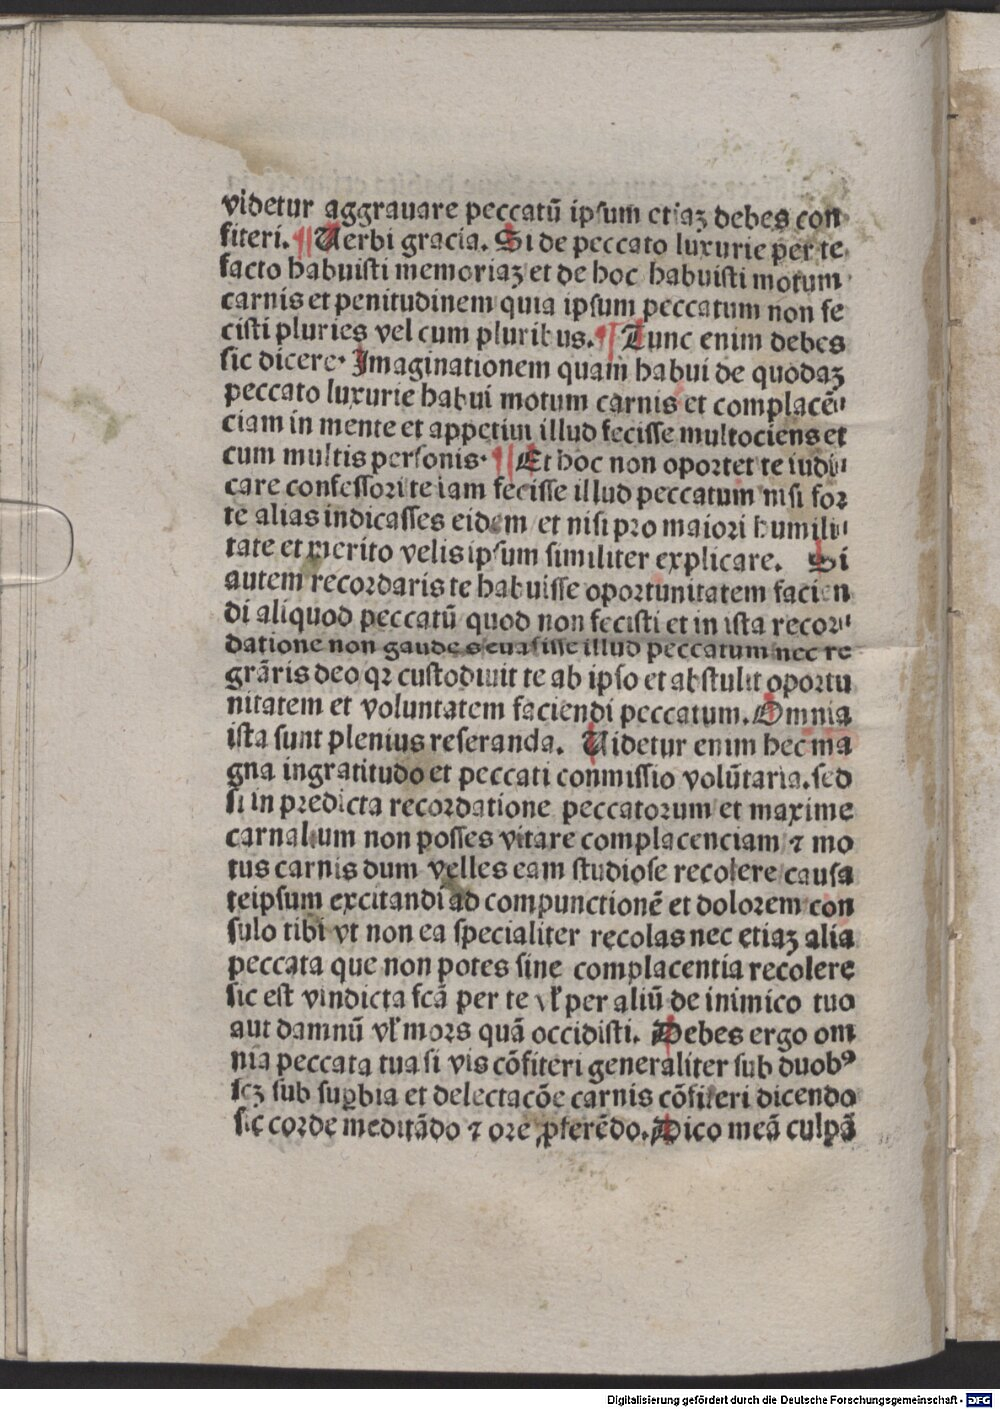 videtur aggrauare peccatū ipsum etiaꝫ debes con
fiteri. ¶ Uerbi gracia. Si de peccato luxurie per te
facto habuisti memoriaꝫ et de hoc habuisti motum
carnis et penitudinem quia ipsum peccatum non fe
cisti pluries vel cum pluribus. ¶ Tunc enim debes
sic dicere. Imaginationem quam habui de quodaꝫ
peccato luxurie habui motum carnis et complacē⸗
ciam in mente et appetiui illud fecisse multociens et
cum multis personis. ¶ Et hoc non oportet te iudi⸗
care confessori te iam fecisse illud peccatum nisi for
te alias indicasses eidem et nisi pro maiori humili⸗
tate et merito velis ipsum similiter explicare. Si
autem recordaris te habuisse oportunitatem facien
di aliquod peccatū quod non fecisti et in ista recor⸗
datione non gaudes euasisse illud peccatum nec re
grāris deo qꝛ custodiuit te ab ipso et abstulit oportu
nitatem et voluntatem faciendi peccatum. Omnia
ista sunt plenius reseranda. Uidetur enim hec ma
gna ingratitudo et peccati conmissio volūtaria. sed
si in predicta recordatione peccatorum et maxime
carnalium non posses vitare complacenciam ⁊ mo
tus carnis dum velles eam studiose recolere causa
teipsum excitandi ad compunctionē et dolorem con
sulo tibi vt non ea specialiter recolas nec etiaꝫ alia
peccata que non potes sine complacentia recolere
sic est vindicta fcā per te vl̓ per aliū de inimico tuo
aut damnū vl̓ mors quā occidisti. Debes ergo om
nia peccata tua si vis cōfiteri generaliter sub duobꝰ
scꝫ sub suꝑbia et delectacōe carnis cōfiteri dicendo
sic corde meditādo ⁊ ore ꝓferēdo. Dico meā culpā
Digitalisierung gefördert durch die Deutsche Forschungsgemeinschaft - DFG